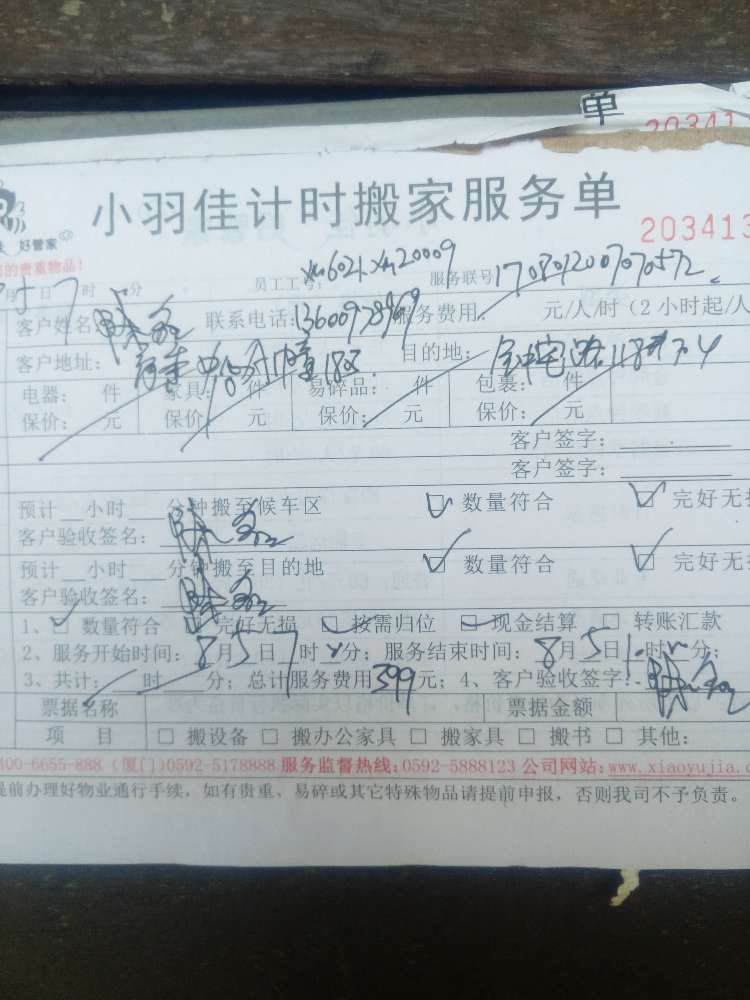 单
203413
小羽佳计时搬家服务单
好管家
203413
的贵重物品!
月 日7时 分 员工工号: xm6021 xm20009 服务联号1708012007070572
客户姓名: 联系电话: 服务费用: 元/人/时(2小时起/人
客户地址: 目的地:
电器: 件 家具: 件 易碎品: 件 包裹: 件
保价: 元 保价: 元 保价: 元 保价: 元
客户签字:
客户签字:
预计__小时___分钟搬至候车区 ☑ 数量符合 ☑ 完好无损
客户验收签名:
预计__小时___分钟搬至目的地 ☑ 数量符合 ☑ 完好无损
客户验收签名:
1、☑ 数量符合 ☑ 完好无损 ☑ 按需归位 ☑ 现金结算 □ 转账汇款
2、服务开始时间: 8月5日7时 分; 服务结束时间: 8月5日 时 分;
3、共计: 时 分; 总计服务费用399元; 4、客户验收签字:
票据名称 票据金额
项 目 □ 搬设备 □ 搬办公家具 □ 搬家具 □ 搬书 □ 其他:
400-6655-888 (厦门)0592-5178888 服务监督热线:0592-5888123 公司网站:www.xiaoyujia.c
提前办理好物业通行手续, 如有贵重、易碎或其它特殊物品请提前申报, 否则我司不予负责。